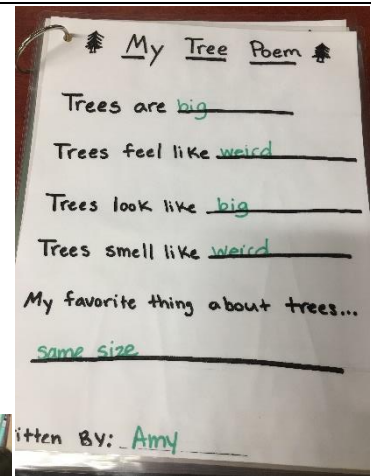 My Tree Poem
Trees are big
Trees feel like weird
Trees look like big
Trees smell like weird
My favorite thing about trees...
same size
itten BY: Amy